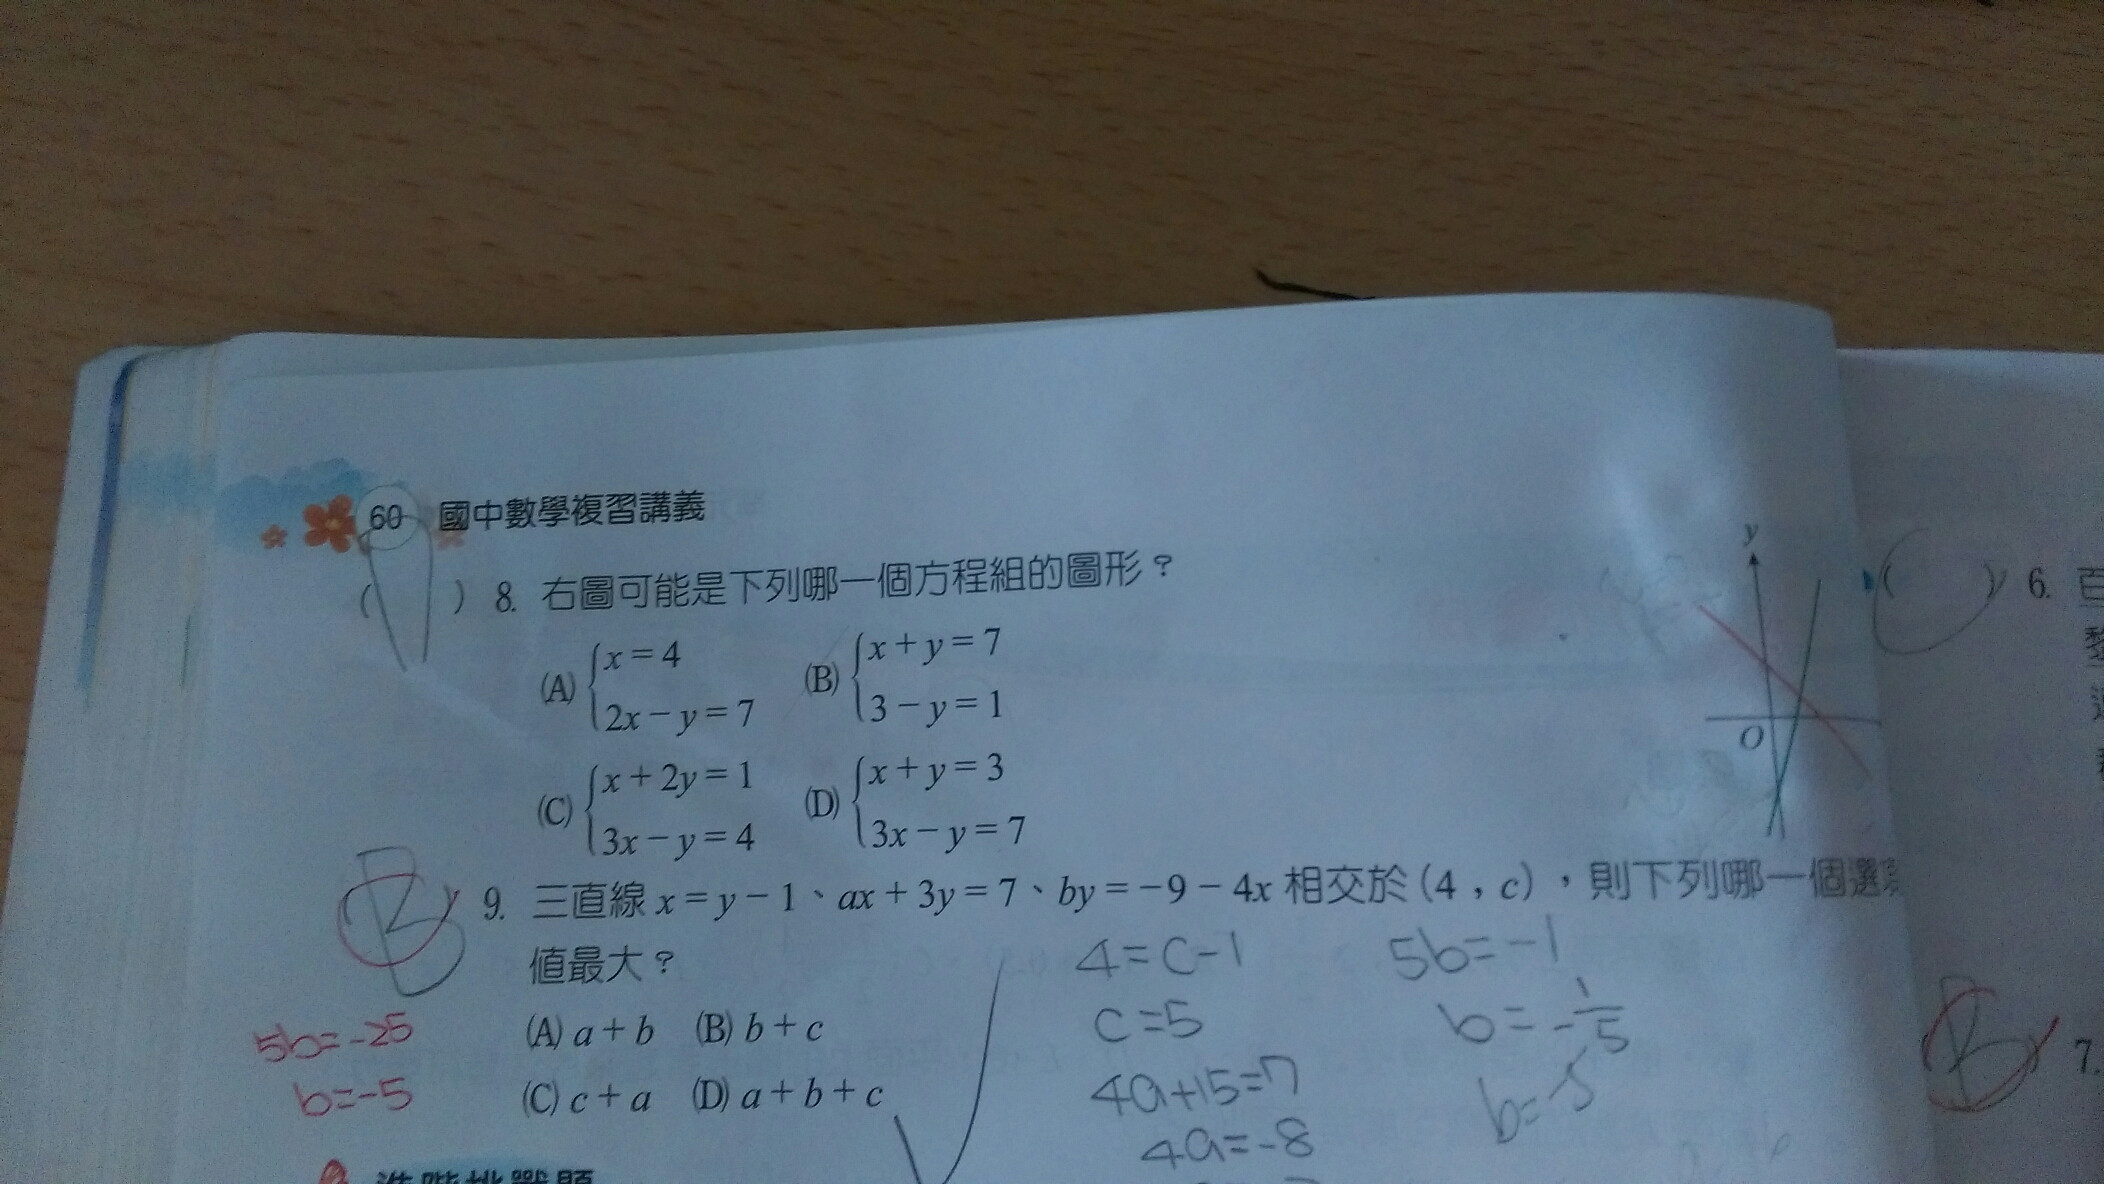 60 國中數學複習講義
( ) 8. 右圖可能是下列哪一個方程組的圖形？
(A) { x = 4
2x − y = 7
(B) { x + y = 7
3 − y = 1
(C) { x + 2y = 1
3x − y = 4
(D) { x + y = 3
3x − y = 7
y
O
B 9. 三直線 x = y − 1、ax + 3y = 7、by = −9 − 4x 相交於 (4，c)，則下列哪一個選
值最大？
(A) a + b (B) b + c
(C) c + a (D) a + b + c
5b=-25
b=-5
4=c-1
c=5
4a+15=7
4a=-8
5b=-1
b=-1/5
b=-5
( ) 6. 百
B 7.
進階挑戰題